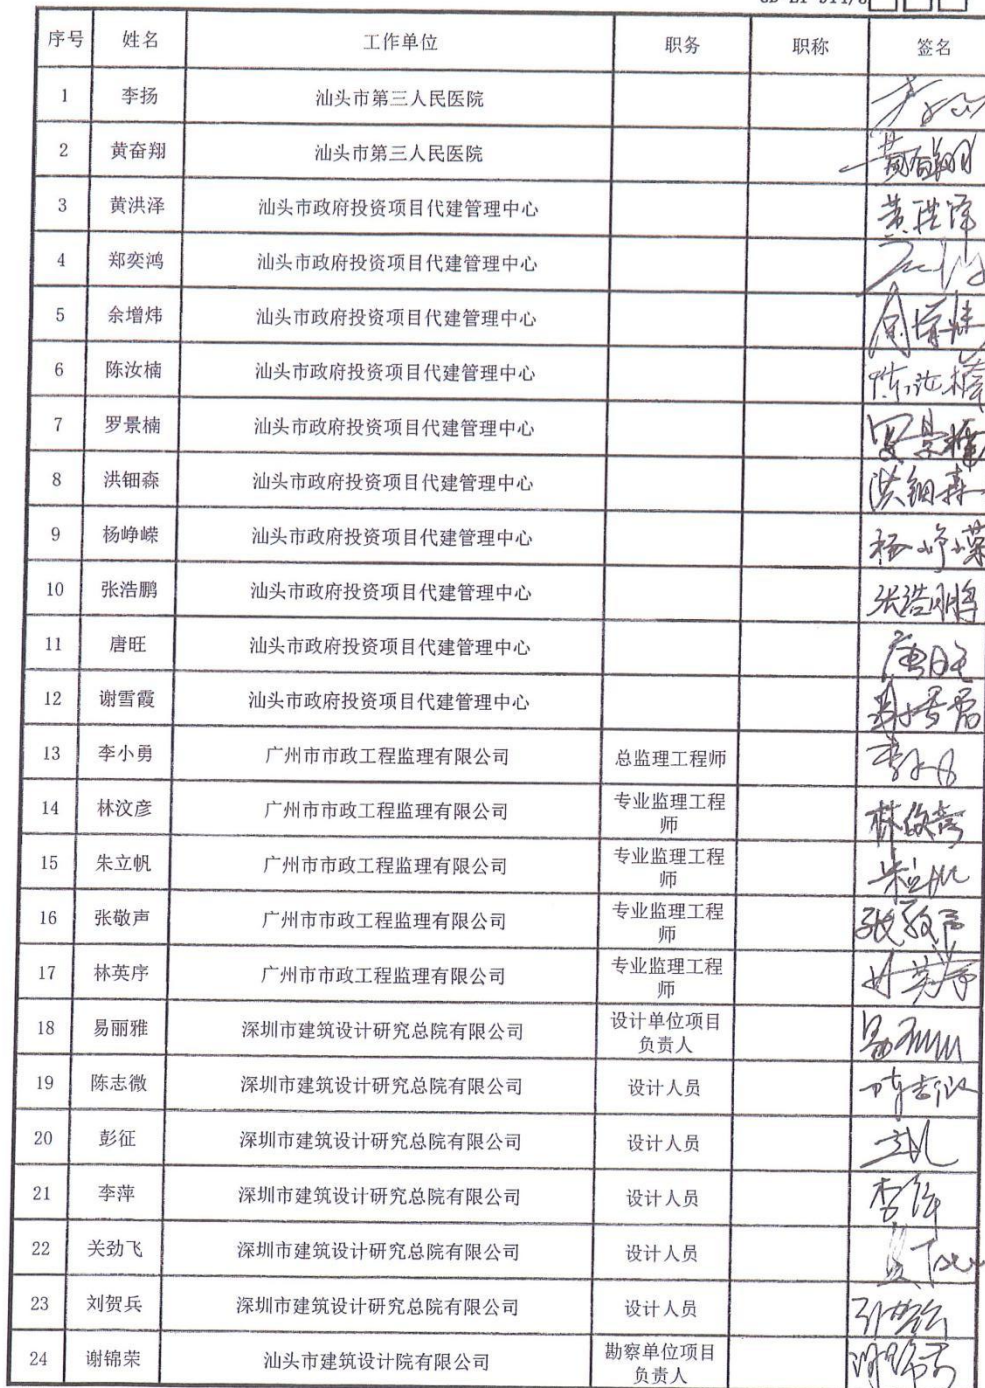 序号 姓名 工作单位 职务 职称 签名
1 李扬 汕头市第三人民医院
2 黄奋翔 汕头市第三人民医院
3 黄洪泽 汕头市政府投资项目代建管理中心 黄洪泽
4 郑奕鸿 汕头市政府投资项目代建管理中心
5 余增炜 汕头市政府投资项目代建管理中心 余增炜
6 陈汝楠 汕头市政府投资项目代建管理中心 陈汝楠
7 罗景楠 汕头市政府投资项目代建管理中心 罗景楠
8 洪钿森 汕头市政府投资项目代建管理中心 洪钿森
9 杨峥嵘 汕头市政府投资项目代建管理中心 杨峥嵘
10 张浩鹏 汕头市政府投资项目代建管理中心 张浩鹏
11 唐旺 汕头市政府投资项目代建管理中心 唐旺
12 谢雪霞 汕头市政府投资项目代建管理中心
13 李小勇 广州市市政工程监理有限公司 总监理工程师
14 林汶彦 广州市市政工程监理有限公司 专业监理工程
师
15 朱立帆 广州市市政工程监理有限公司 专业监理工程
师
16 张敬声 广州市市政工程监理有限公司 专业监理工程 张敬声
师
17 林英序 广州市市政工程监理有限公司 专业监理工程 林英序
师
18 易丽雅 深圳市建筑设计研究总院有限公司 设计单位项目
负责人
19 陈志微 深圳市建筑设计研究总院有限公司 设计人员 陈志微
20 彭征 深圳市建筑设计研究总院有限公司 设计人员
21 李萍 深圳市建筑设计研究总院有限公司 设计人员 李萍
22 关劲飞 深圳市建筑设计研究总院有限公司 设计人员
23 刘贺兵 深圳市建筑设计研究总院有限公司 设计人员
24 谢锦荣 汕头市建筑设计院有限公司 勘察单位项目
负责人